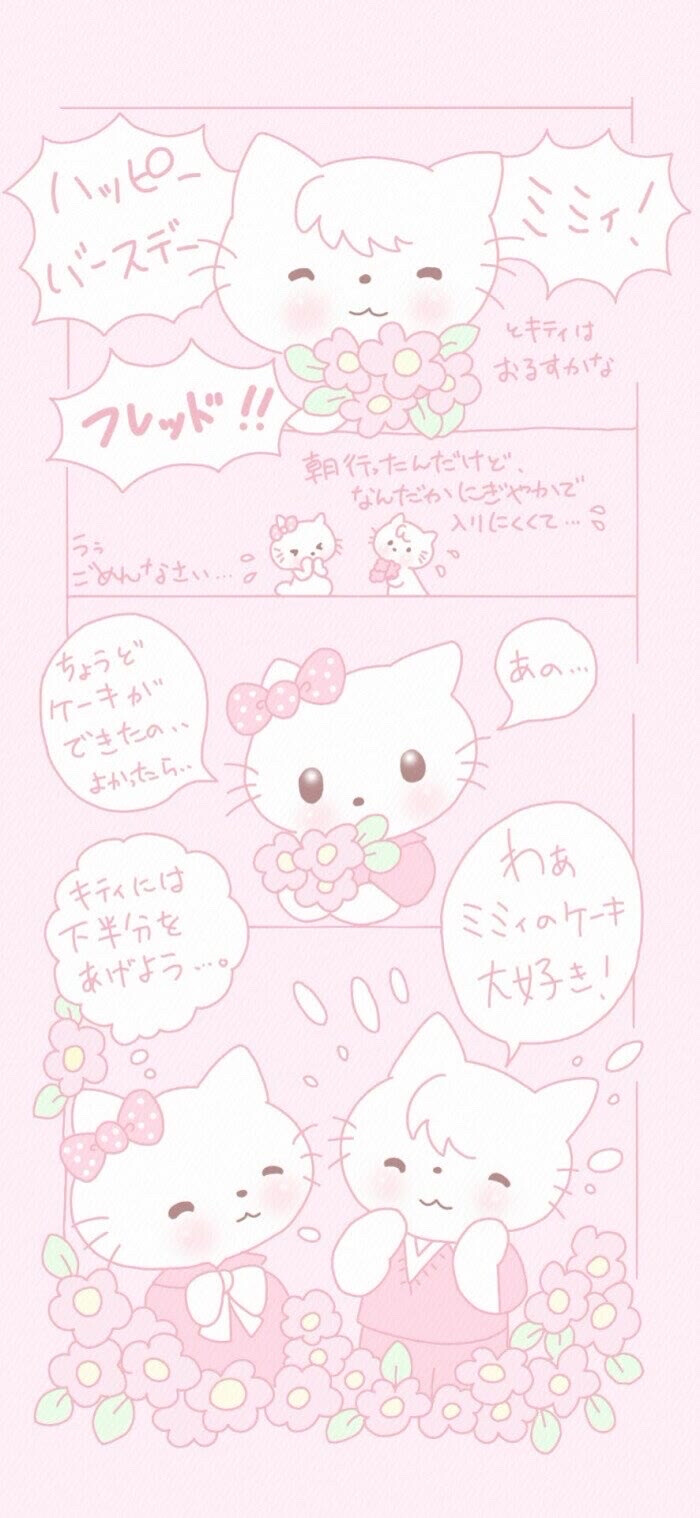 ハッピー
バースデー
ミミィ!
とキティは
おるすかな
フレッド!!
朝行ったんだけど、
なんだかにぎやかで
入りにくくて…
うぅ
ごめんなさい…
あの…
ちょうど
ケーキが
できたの‥
よかったら‥
わぁ
ミミィのケーキ
大好き!
キティには
下半分を
あげよう…。